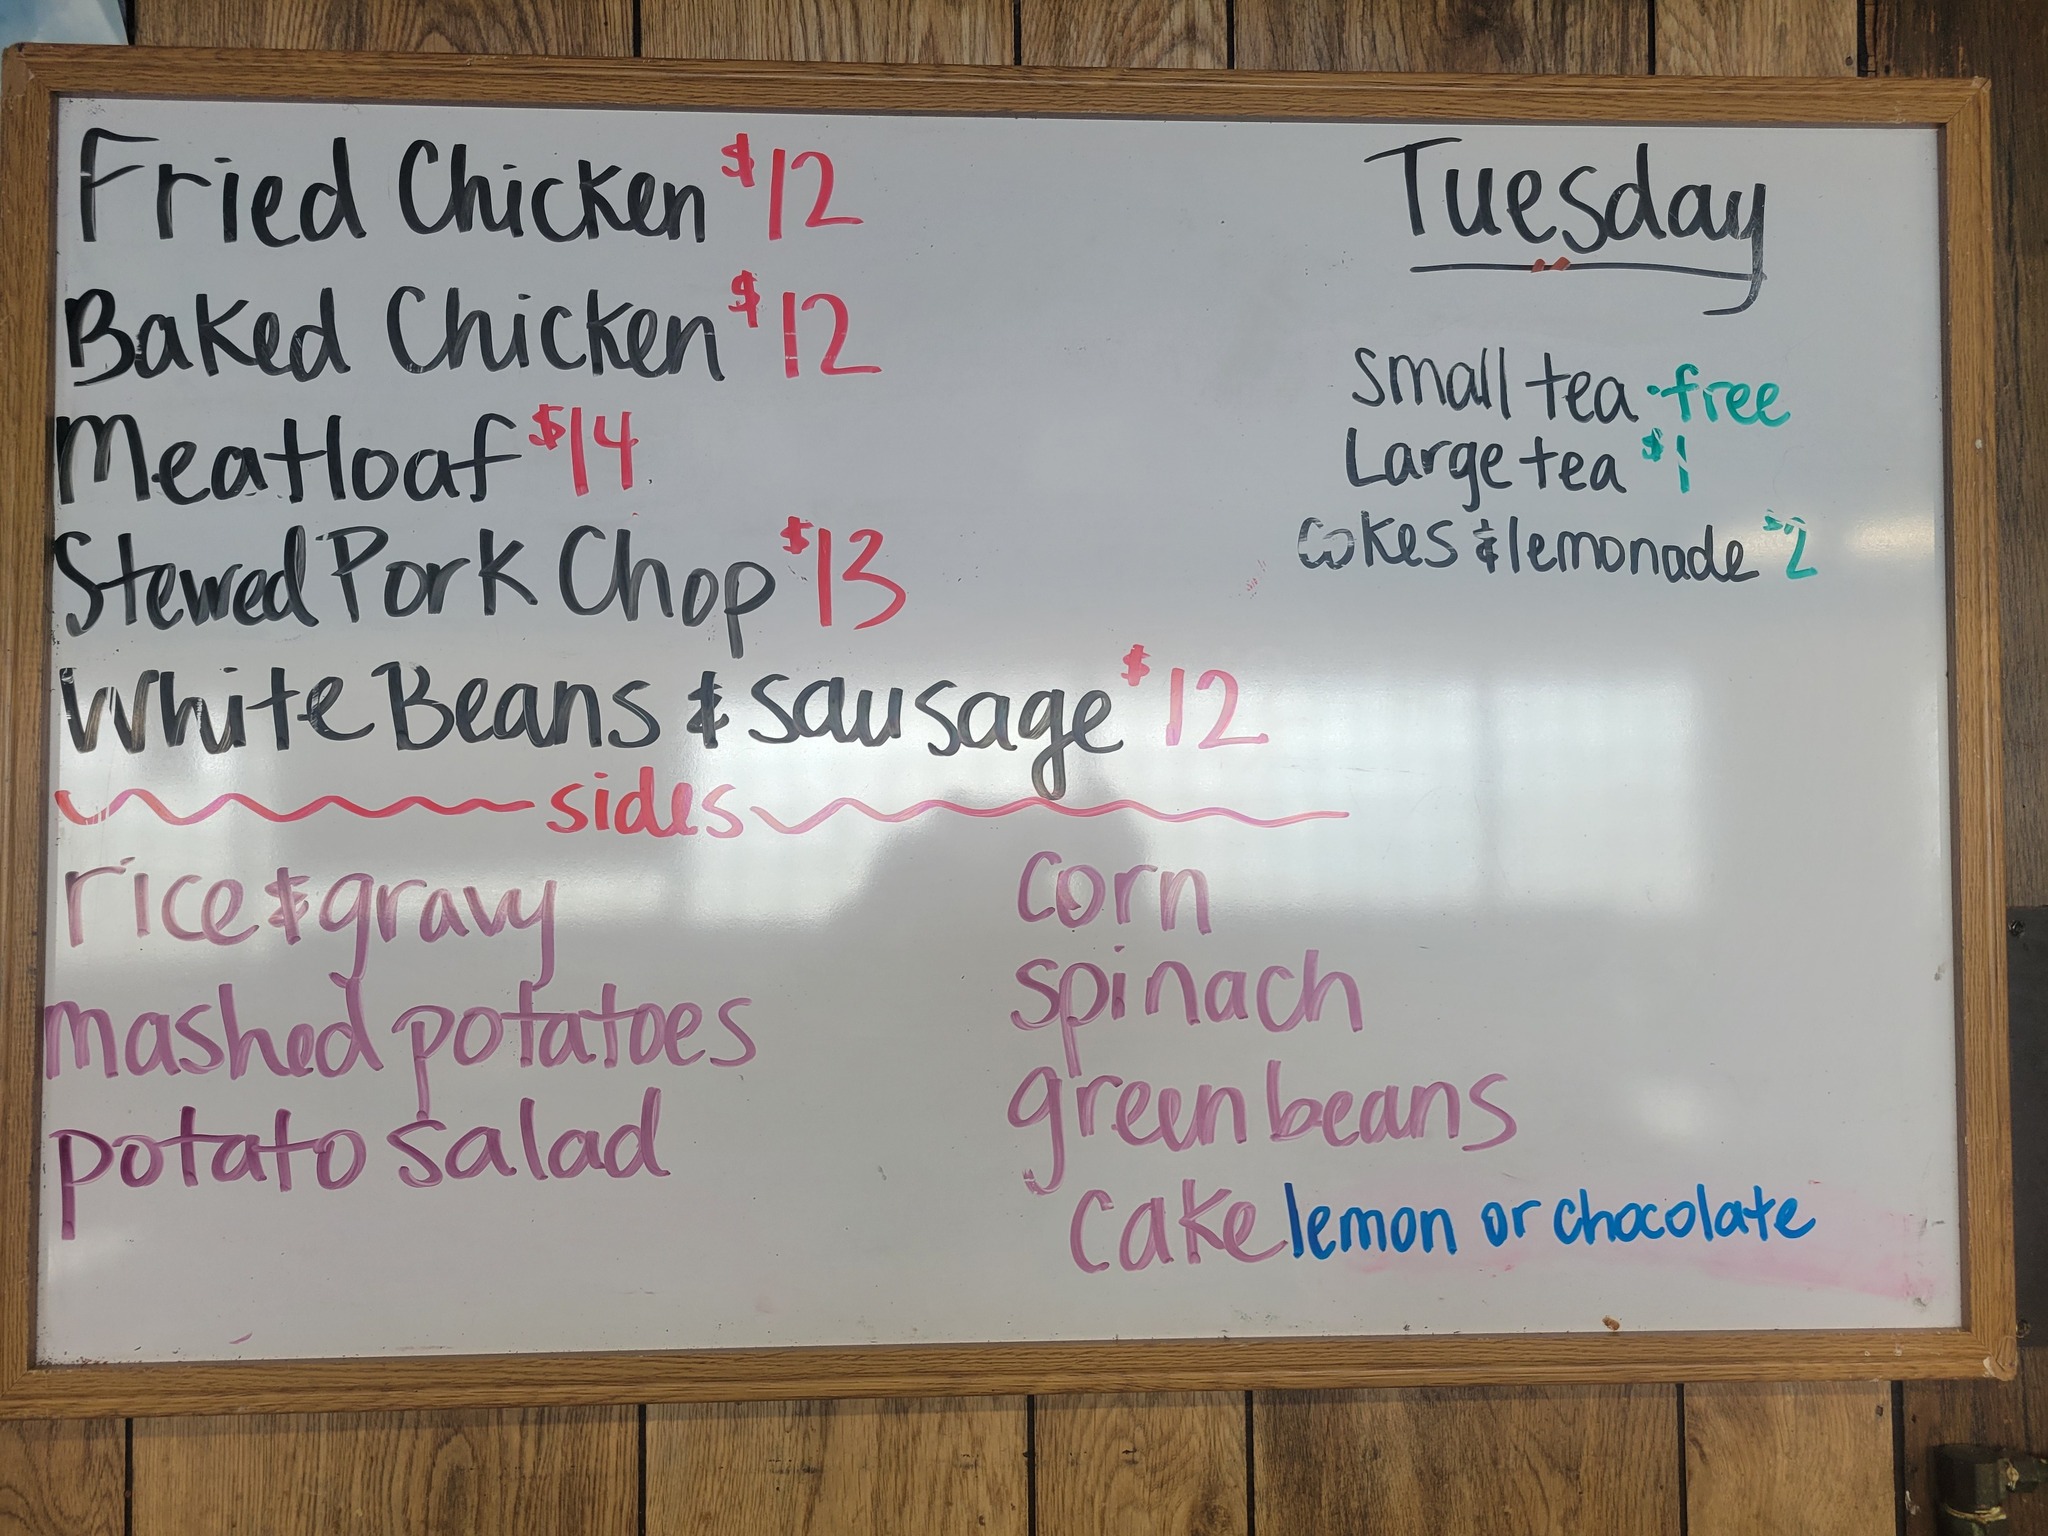 Fried Chicken $12
Baked Chicken $12
Meatloaf $14
Stewed Pork Chop $13
White Beans & sausage $12
Tuesday
small tea - free
Large tea $1
cokes & lemonade $2
sides
rice & gravy
mashed potatoes
potato salad
corn
spinach
green beans
cake lemon or chocolate